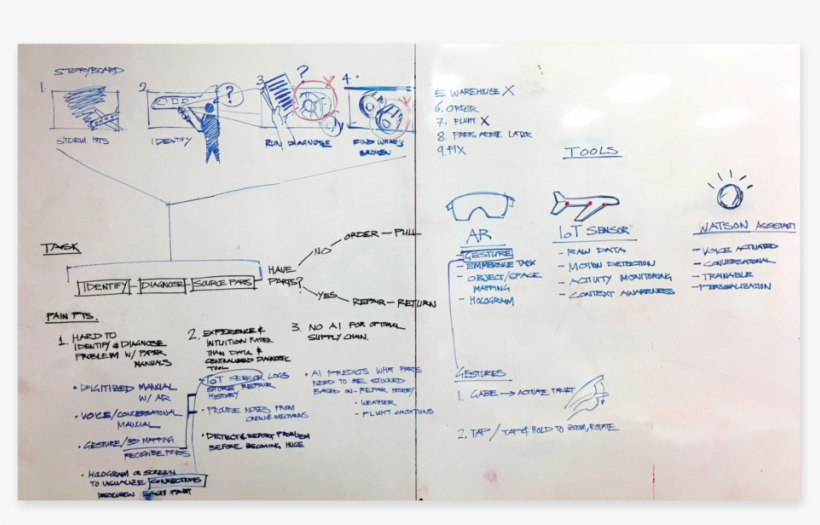 STORYBOARD
1.
2
3
4.
?
?
STORM HITS
IDENTIFY
RUN DIAGNOSE
FIND WHAT'S
BROKEN
TASK
IDENTIFY
DIAGNOSE
SOURCE PARTS
HAVE
PARTS?
NO
ORDER — FULL
YES
REPAIR — RETURN
PAIN PTS.
1. HARD TO
IDENTIFY & DIAGNOSE
PROBLEM W/ PAPER
MANUALS
• DIGITIZED MANUAL
W/ AR
• VOICE/CONVERSATIONAL
MANUAL
• GESTURE/3D MAPPING
RECOGNIZE PARTS
• HOLOGRAM OR SCREEN
TO VISUALIZE CONNECTIONS
BETWEEN EACH PART
2. EXPERIENCE &
INTUITION RATHER
THAN DATA &
CENTRALIZED DIAGNOSTIC
TOOL
IoT SENSOR LOGS
STORE REPAIR
HISTORY
• PROVIDE NOTES FROM
CREW & MECHANICS
• DETECT & REPORT PROBLEM
BEFORE BECOMING HUGE
3. NO AI FOR OPTIMAL
SUPPLY CHAIN.
• AI PREDICTS WHAT PARTS
NEED TO BE STOCKED
BASED ON - REPAIR HISTORY
- WEATHER
- FLIGHT CONDITIONS
5. WAREHOUSE X
6. ORDER
7. FLIGHT X
8. PARTS ARRIVE LATER
9. FIX
TOOLS
AR
- GESTURE
- IMMERSIVE TASK
- OBJECT/SPACE
MAPPING
- HOLOGRAM
IoT SENSOR
- RAW DATA
- MOTION DETECTION
- ACTIVITY MONITORING
- CONTEXT AWARENESS
WATSON ASSISTANT
- VOICE ACTIVATED
- CONVERSATIONAL
- TRAINABLE
- PERSONALIZATION
GESTURES
1. GAZE → ACTIVATE
2. TAP / TAP & HOLD TO ZOOM, ROTATE